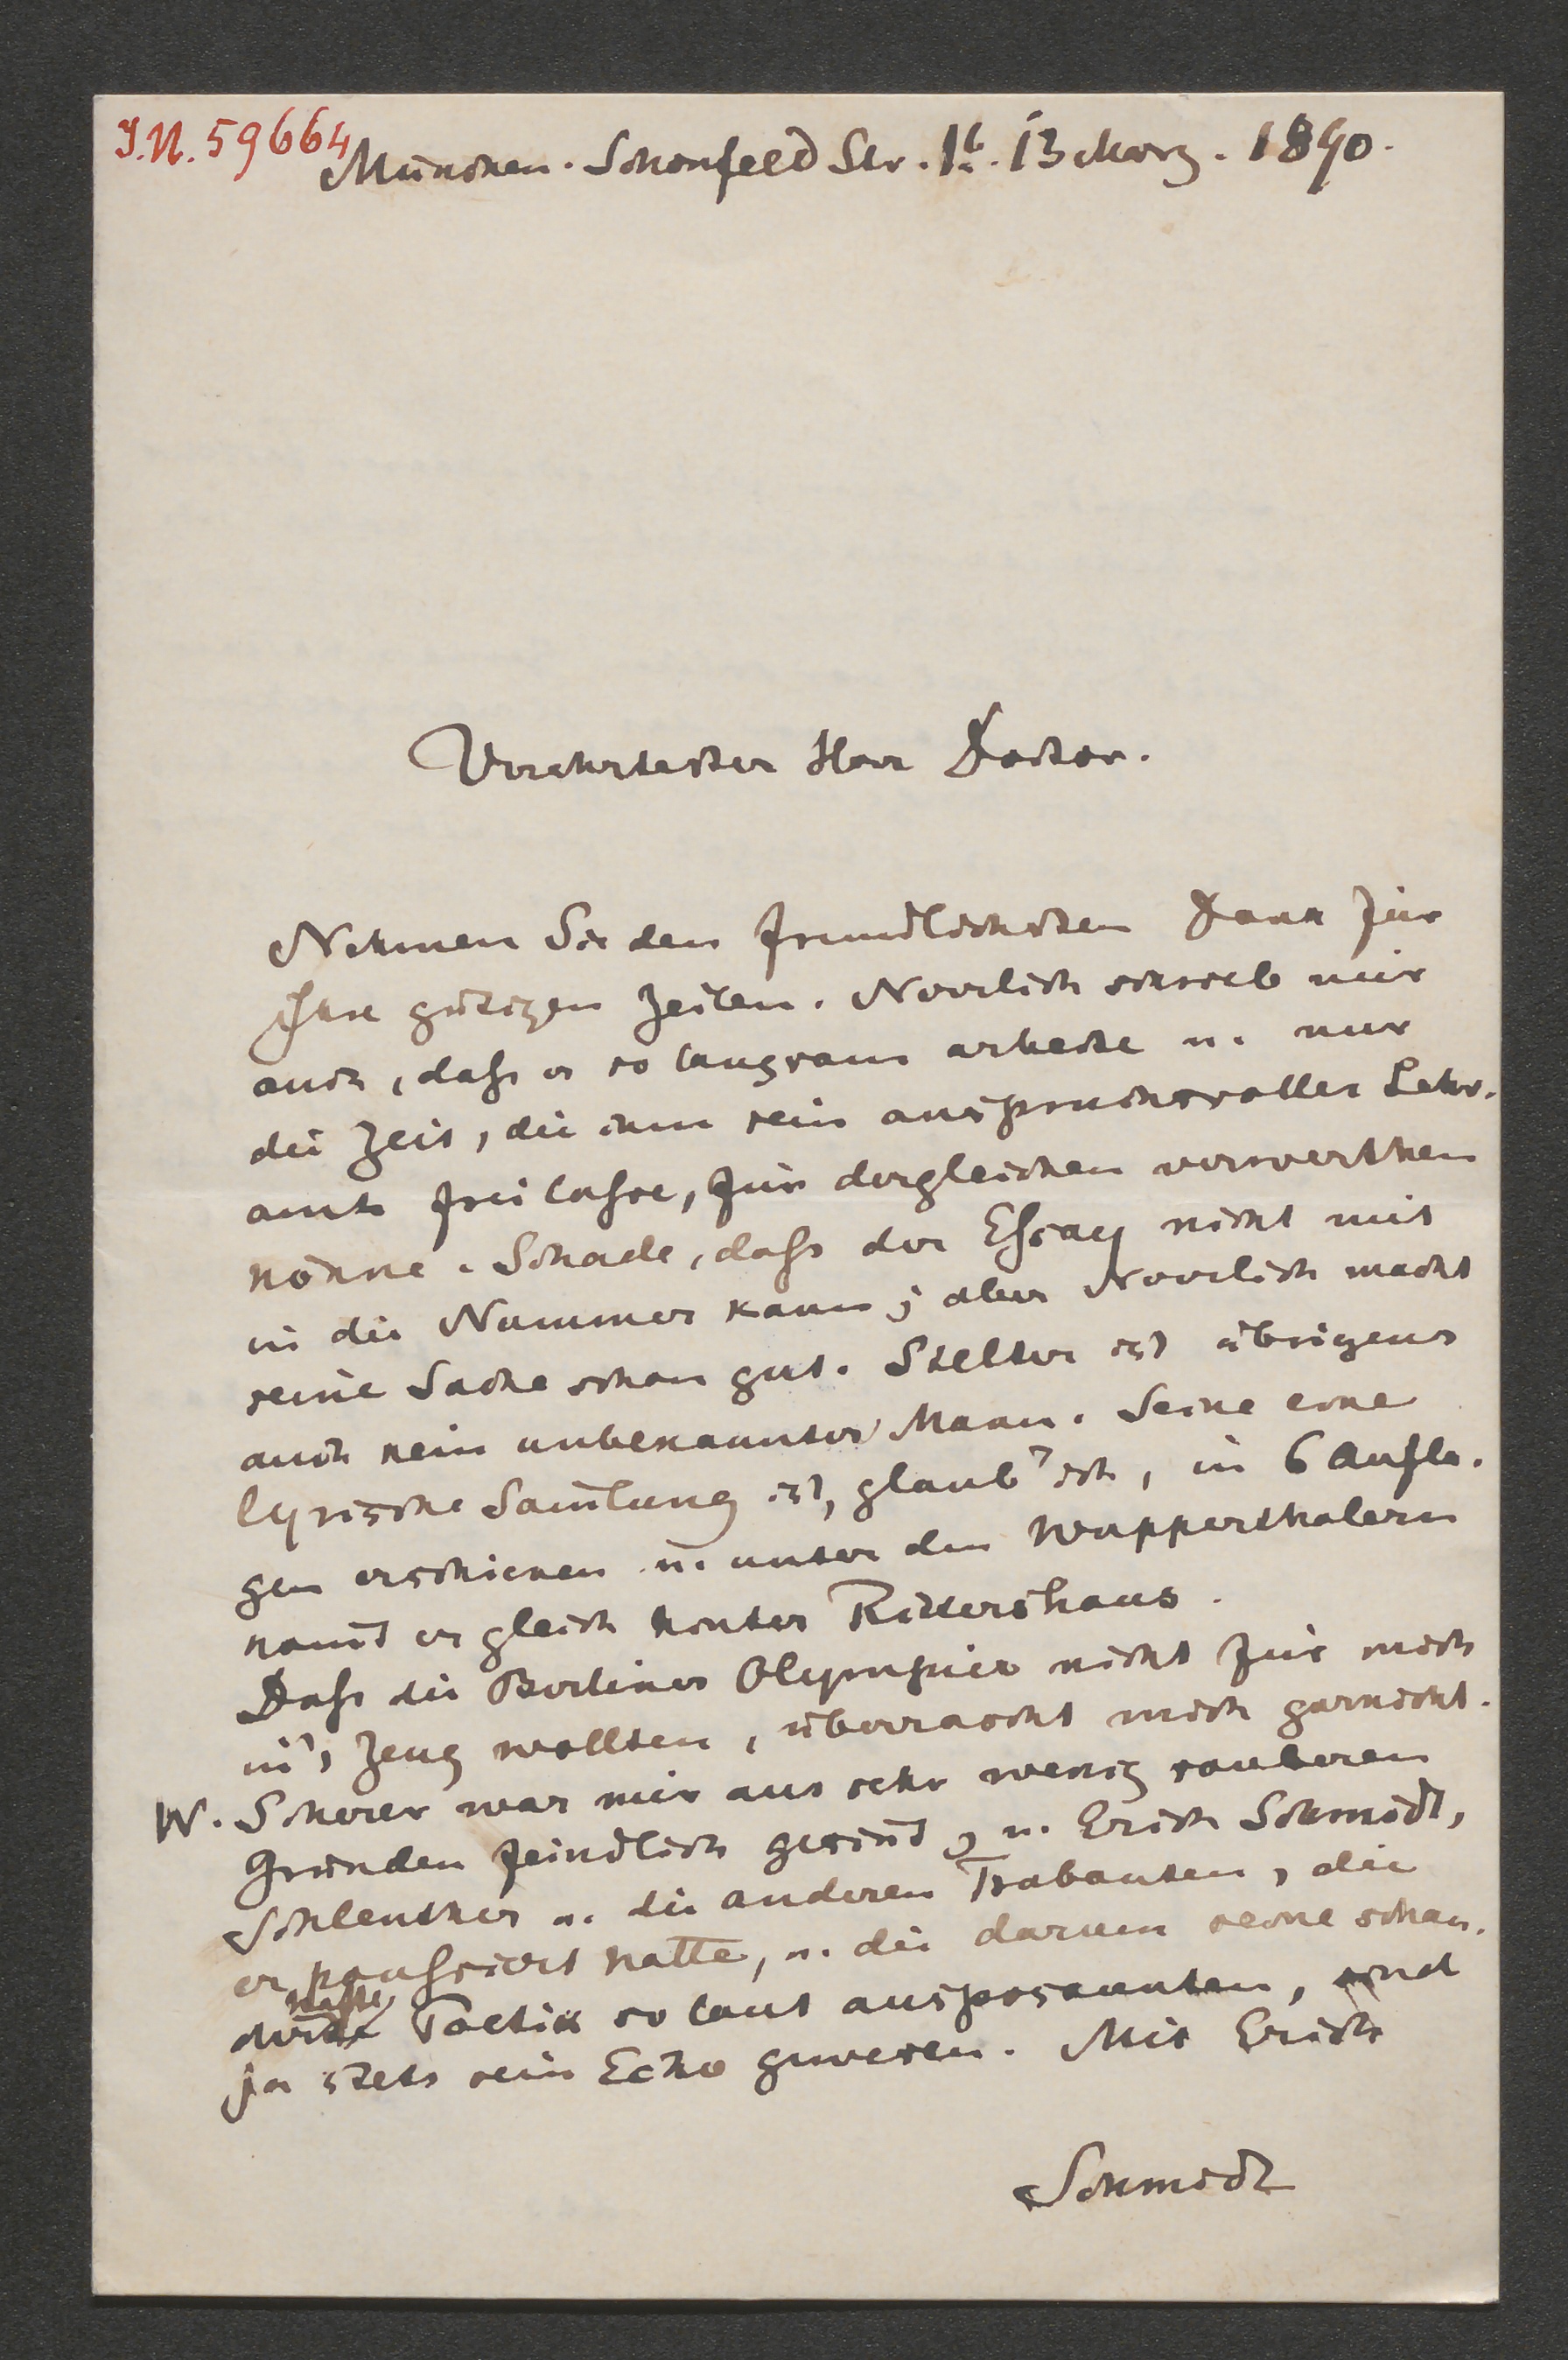 J.N. 59664
München. Schönfeld Str. 1b. 13 März. 1890.
Verehrtester Herr Doctor.
Nehmen Sie den freundlichsten Dank für
Ihre gütigen Zeilen. Noerlich schrieb mir
auch, daß er so langsam arbeite u. nur
die Zeit, die ihm sein anspruchsvolles Lehr-
amt frei lasse, für dergleichen verwerthen
könne. Schade, daß der Essay nicht mit
in die Nummer kann; aber Noerlich macht
seine Sache schon gut. Stelter ist übrigens
auch kein unbekannter Mann. Seine eine
lyrische Sam̄lung ist, glaub' ich, in 6 Aufla-
gen erschienen u. unter den Wupperthalern
kom̄t er gleich hinter Rittershaus.
Daß die Berliner Olympier nicht für mich
in's Zeug wollten, überrascht mich garnicht.
W. Scherer war mir aus sehr wenig sauberen
Gründen feindlich gesin̄t, u. Erich Schmidt,
Schlenther u. die anderen Trabanten, die
er poussiert hatte, u. die darum seine schau-
derhafte Poetik so laut ausposaunten, sind
ja stets sein Echo gewesen. Mit Erich
Schmidt